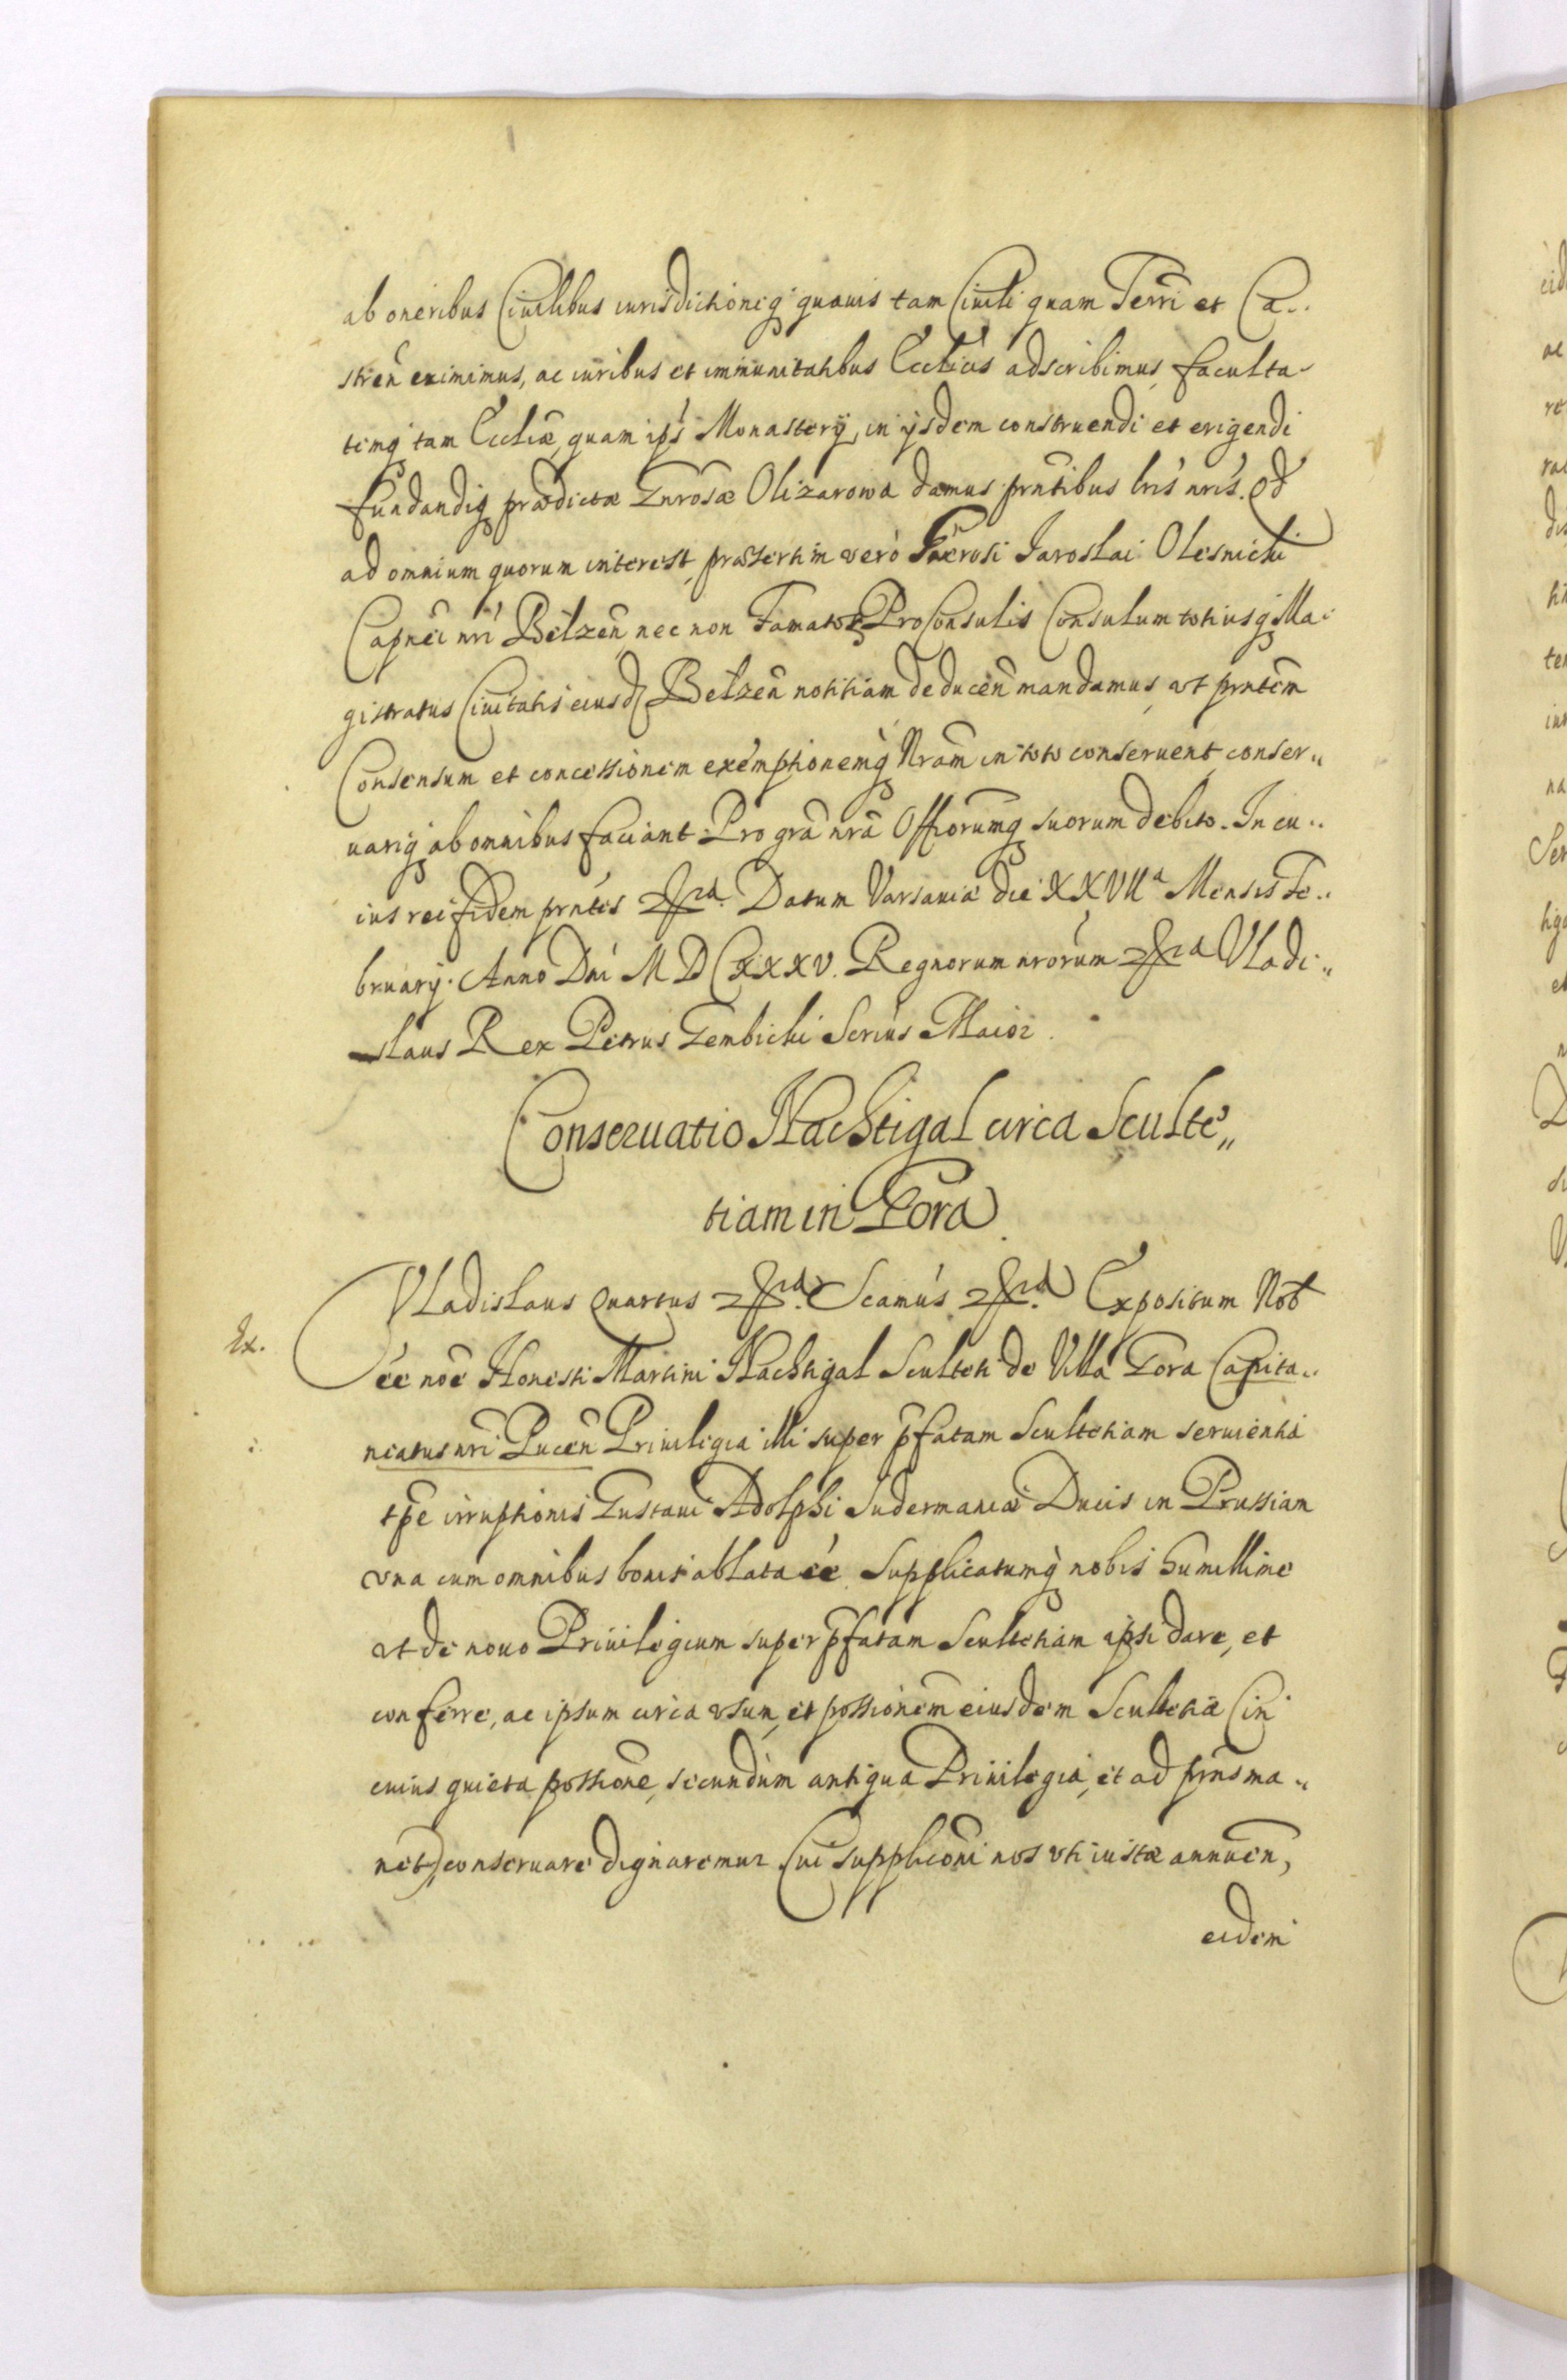 ab oneribus Ciuilibus iurisdictioneq́ quauis tam Ciuili quam Terrī et Ca..
stren̄ eximimus, ac iuribus et immunitatibus Eccliēis adscribimus, faculta-
temq́ tam Eccliæ, quam ips̄ Monasterÿ, in ijsdem construendi et erigendi
fundandiq́ prædictæ Gnrosæ Olizarowa damus prntībus lrīs nrīs. Qd
ad omnium quorum interest, præsertim verò Gnerosi Iaroslai Olesnicki
Capnēi nrī Belzen̄ nec non Famator ProConsulis Consulum totiusq́ Ma:
gistratus Ciuitatis eiusd Belzen̄ notitiam deducen̄ mandamus, vt prntēm
Consensum et concessionem exemptionemq́ Nram̄ in toto conseruent, conser„
uariq́ ab omnibus faciant. Pro grā nrā Offiorūmq́ suorum debito. In cu..
ius rei fidem prntēs Datum Varsauiæ die XXVIIa Mensis Fe..
bruarÿ. Anno Dnī MDCXXXV. Regnorum nrorūm Vladi„
slaus Rex Petrus Gembicki Scrīus Maior.
Conseruatio Nachtigal circa Sculte„
tiam in Gora.
Vladislaus Quartus Scamūs Expositum Nob
Ex.
ēe noē Honesti Martini Nachtigal Sculteti de Villa Gora Capita..
neatus nrī Pucen̄ Priuilegia illi super p̄fatam Scultetiam seruientia
tp̄e irruptionis Gustaui Adolphi Sudermaniæ Ducis in Prussiam
vna cum omnibus bonis ablata ēe. Supplicatumq́ nobis humillime
vt de nouo Priuilegium super p̄fatam Scultetiam ipsi dare, et
conferre, ac ipsum circa vsum, et possionēm eiusdem Scultetiæ (in
cuius quieta possionē, secundum antiqua Priuilegia, et ad prn̄s ma„
net) conseruare dignaremur. Cui supplicōni nos vti iustæ annuen̄,
eidem